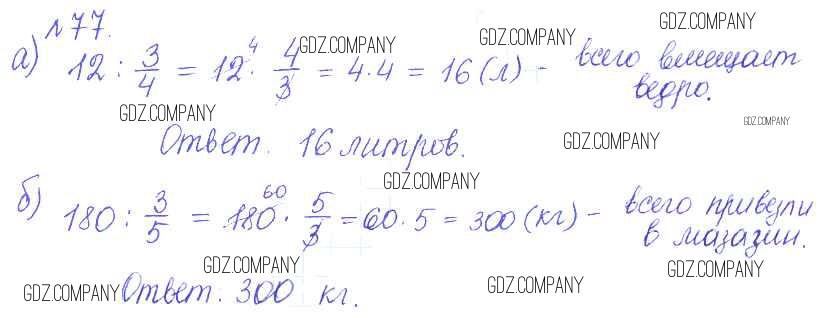 №77.
GDZ.COMPANY
а) 12 : 3/4 = 12 · 4/3 = 4·4 = 16 (л) - всего вмещает
4
GDZ.COMPANY GDZ.COMPANY
ведро.
GDZ.COMPANY GDZ.COMPANY
Ответ. 16 литров. GDZ.COMPANY
GDZ.COMPANY
б) 180 : 3/5 = 180 · 5/3 = 60·5 = 300 (кг) - всего привезли
60
в магазин.
GDZ.COMPANY GDZ.COMPANY
GDZ.COMPANY Ответ: 300 кг. GDZ.COMPANY